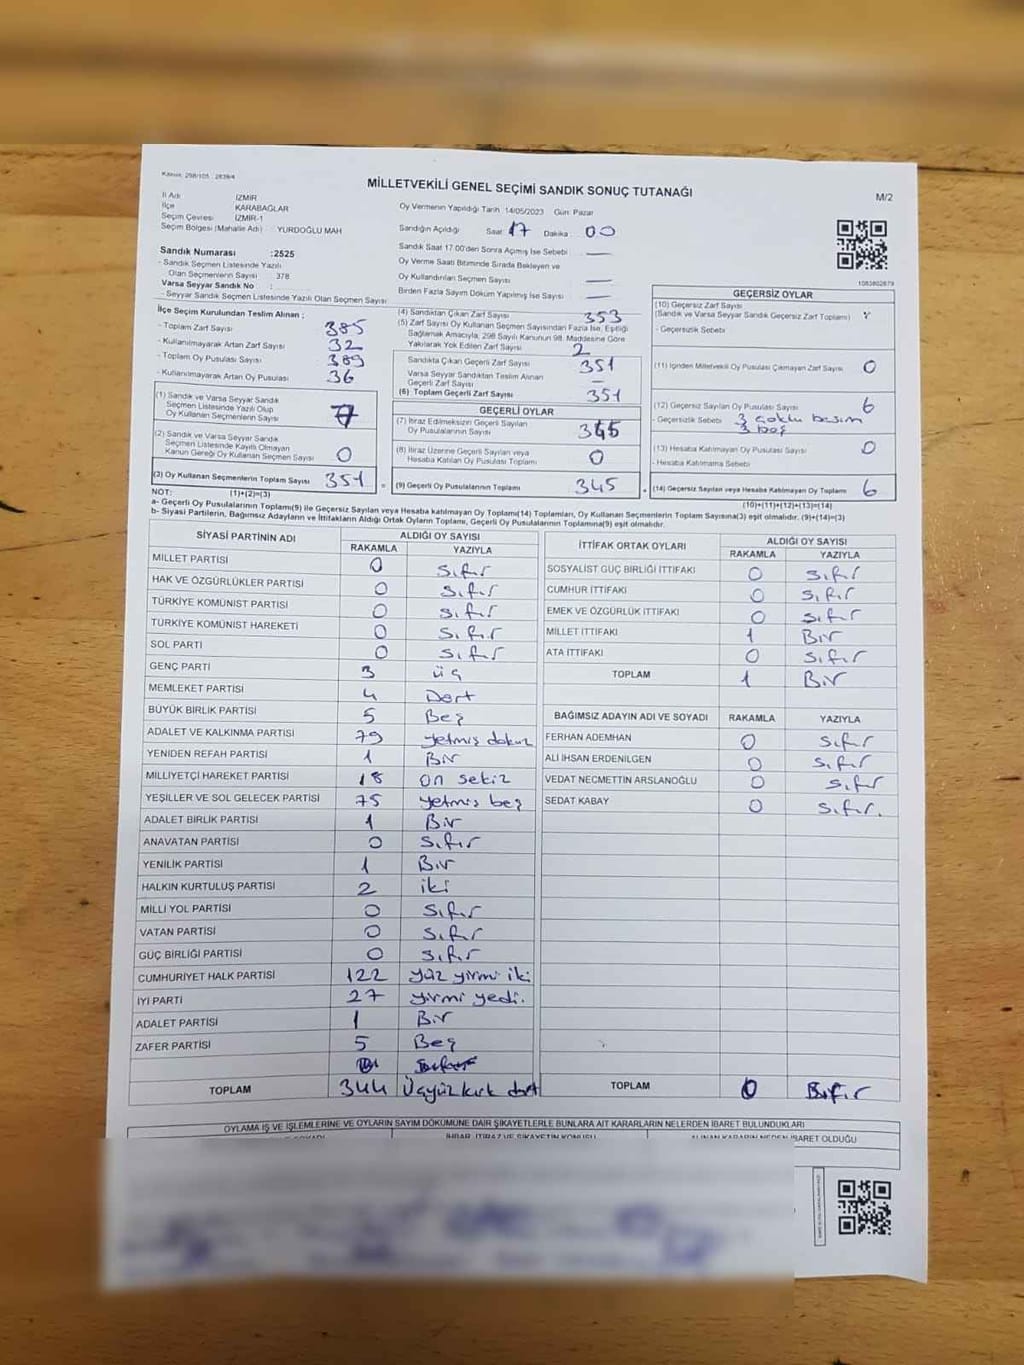 Kanun: 298/105 : 2839/4
MİLLETVEKİLİ GENEL SEÇİMİ SANDIK SONUÇ TUTANAĞI
M/2
İl Adı İZMİR
İlçe KARABAĞLAR
Seçim Çevresi İZMİR-1
Seçim Bölgesi (Mahalle Adı) : YURDOĞLU MAH
Sandık Numarası :2525
- Sandık Seçmen Listesinde Yazılı
Olan Seçmenlerin Sayısı : 378
Varsa Seyyar Sandık No :
- Seyyar Sandık Seçmen Listesinde Yazılı Olan Seçmen Sayısı
Oy Vermenin Yapıldığı Tarih 14/05/2023 Gün: Pazar
Sandığın Açıldığı Saat: 17 Dakika : 00
Sandık Saat 17.00'den Sonra Açımış İse Sebebi : —
Oy Verme Saati Bitiminde Sırada Bekleyen ve
Oy Kullandırılan Seçmen Sayısı : —
Birden Fazla Sayım Döküm Yapılmış İse Sayısı : —
1083802879
İlçe Seçim Kurulundan Teslim Alınan ;
- Toplam Zarf Sayısı : 385
- Kullanılmayarak Artan Zarf Sayısı : 32
- Toplam Oy Pusulası Sayısı : 389
- Kullanılmayarak Artan Oy Pusulası : 36
(1) Sandık ve Varsa Seyyar Sandık
Seçmen Listesinde Yazılı Olup
Oy Kullanan Seçmenlerin Sayısı
(2) Sandık ve Varsa Seyyar Sandık
Seçmen Listesinde Kayıtlı Olmayan
Kanun Gereği Oy Kullanan Seçmen Sayısı 0
(3) Oy Kullanan Seçmenlerin Toplam Sayısı 351
(4) Sandıktan Çıkan Zarf Sayısı 353
(5) Zarf Sayısı Oy Kullanan Seçmen Sayısından Fazla İse, Eşitliği
Sağlamak Amacıyla, 298 Sayılı Kanunun 98. Maddesine Göre
Yakılarak Yok Edilen Zarf Sayısı 2
Sandıkta Çıkan Geçerli Zarf Sayısı 351
Varsa Seyyar Sandıktan Teslim Alınan
Geçerli Zarf Sayısı —
(6) Toplam Geçerli Zarf Sayısı 351
GEÇERLİ OYLAR
(7) İtiraz Edilmeksizin Geçerli Sayılan
Oy Pusulalarının Sayısı 345
(8) İtiraz Üzerine Geçerli Sayılan veya
Hesaba Katılan Oy Pusulası Toplamı 0
(9) Geçerli Oy Pusulalarının Toplamı 345
GEÇERSİZ OYLAR
(10) Geçersiz Zarf Sayısı
(Sandık ve Varsa Seyyar Sandık Geçersiz Zarf Toplamı)
- Geçersizlik Sebebi
(11) İçinden Milletvekili Oy Pusulası Çıkmayan Zarf Sayısı 0
(12) Geçersiz Sayılan Oy Pusulası Sayısı 6
- Geçersizlik Sebebi 3 çoklu basım
3 boş
(13) Hesaba Katılmayan Oy Pusulası Sayısı 0
- Hesaba Katılmama Sebebi
(14) Geçersiz Sayılan veya Hesaba Katılmayan Oy Toplamı 6
NOT: (1)+(2)=(3) (10)+(11)+(12)+(13)=(14)
a- Geçerli Oy Pusulalarının Toplamı(9) ile Geçersiz Sayılan veya Hesaba Katılmayan Oy Toplamı(14) Toplamları, Oy Kullanan Seçmenlerin Toplam Sayısına(3) eşit olmalıdır. (9)+(14)=(3)
b- Siyasi Partilerin, Bağımsız Adayların ve İttifakların Aldığı Ortak Oyların Toplamı, Geçerli Oy Pusulalarının Toplamına(9) eşit olmalıdır.
SİYASİ PARTİNİN ADI ALDIĞI OY SAYISI
RAKAMLA YAZIYLA
MİLLET PARTİSİ 0 sıfır
HAK VE ÖZGÜRLÜKLER PARTİSİ 0 sıfır
TÜRKİYE KOMÜNİST PARTİSİ 0 sıfır
TÜRKİYE KOMÜNİST HAREKETİ 0 sıfır
SOL PARTİ 0 sıfır
GENÇ PARTİ 3 üç
MEMLEKET PARTİSİ 4 Dört
BÜYÜK BİRLİK PARTİSİ 5 Beş
ADALET VE KALKINMA PARTİSİ 79 yetmiş dokuz
YENİDEN REFAH PARTİSİ 1 Bir
MİLLİYETÇİ HAREKET PARTİSİ 18 on sekiz
YEŞİLLER VE SOL GELECEK PARTİSİ 75 yetmiş beş
ADALET BİRLİK PARTİSİ 1 Bir
ANAVATAN PARTİSİ 0 sıfır
YENİLİK PARTİSİ 1 Bir
HALKIN KURTULUŞ PARTİSİ 2 iki
MİLLİ YOL PARTİSİ 0 sıfır
VATAN PARTİSİ 0 sıfır
GÜÇ BİRLİĞİ PARTİSİ 0 sıfır
CUMHURİYET HALK PARTİSİ 122 yüz yirmi iki
İYİ PARTİ 27 yirmi yedi.
ADALET PARTİSİ 1 Bir
ZAFER PARTİSİ 5 Beş
TOPLAM 344 Üçyüz kırk dört
İTTİFAK ORTAK OYLARI ALDIĞI OY SAYISI
RAKAMLA YAZIYLA
SOSYALİST GÜÇ BİRLİĞİ İTTİFAKI 0 sıfır
CUMHUR İTTİFAKI 0 sıfır
EMEK VE ÖZGÜRLÜK İTTİFAKI 0 sıfır
MİLLET İTTİFAKI 1 Bir
ATA İTTİFAKI 0 sıfır
TOPLAM 1 Bir
BAĞIMSIZ ADAYIN ADI VE SOYADI RAKAMLA YAZIYLA
FERHAN ADEMHAN 0 sıfır
ALİ İHSAN ERDENİLGEN 0 sıfır
VEDAT NECMETTİN ARSLANOĞLU 0 sıfır
SEDAT KABAY 0 sıfır.
TOPLAM 0 sıfır
OYLAMA İŞ VE İŞLEMLERİNE VE OYLARIN SAYIM DÖKÜMÜNE DAİR ŞİKAYETLERLE BUNLARA AİT KARARLARIN NELERDEN İBARET BULUNDUKLARI
İHBAR, İTİRAZ VE ŞİKAYETİN KONUSU ALINAN KARARIN NEDEN İBARET OLDUĞU